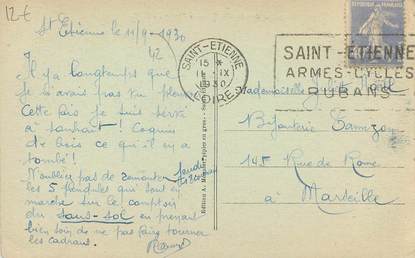 12 €
St Etienne le 11/9 - 1930
42
Il y a longtemps que
je n'avais pas vu pleuvoir
Cette fois je suis servi
à souhait ! Coquin
de bois ce qu'il en a
tombé !
N'oubliez pas de remonter
les 5 pendules qui sont en
marche sur le comptoir
du sous-sol en prenant
bien soin de ne pas faire tourner
les cadrans.
SAINT-ETIENNE
15 *
11 - IX
1930
LOIRE
SAINT-ETIENNE
ARMES-CYCLES
RUBANS
Mademoiselle
Bijouterie
145 Rue de Rome
à Marseille